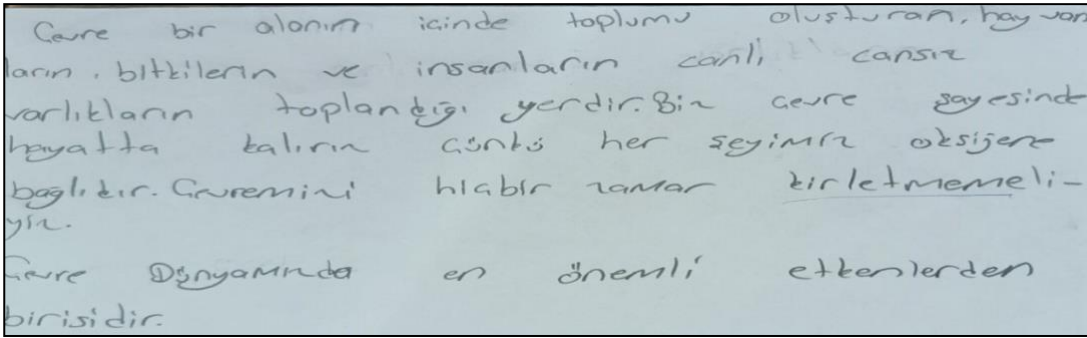 Çevre bir alanın içinde toplumu oluşturan, hayvan
ların, bitkilerin ve insanların canlı cansız
varlıkların toplandığı yerdir. Biz çevre sayesinde
hayatta kalırız Çünkü her şeyimiz oksijene
bağlıdır. Çevremizi hiçbir zaman kirletmemeli-
yiz.
Çevre Dünyamızda en önemli etkenlerden
birisidir.